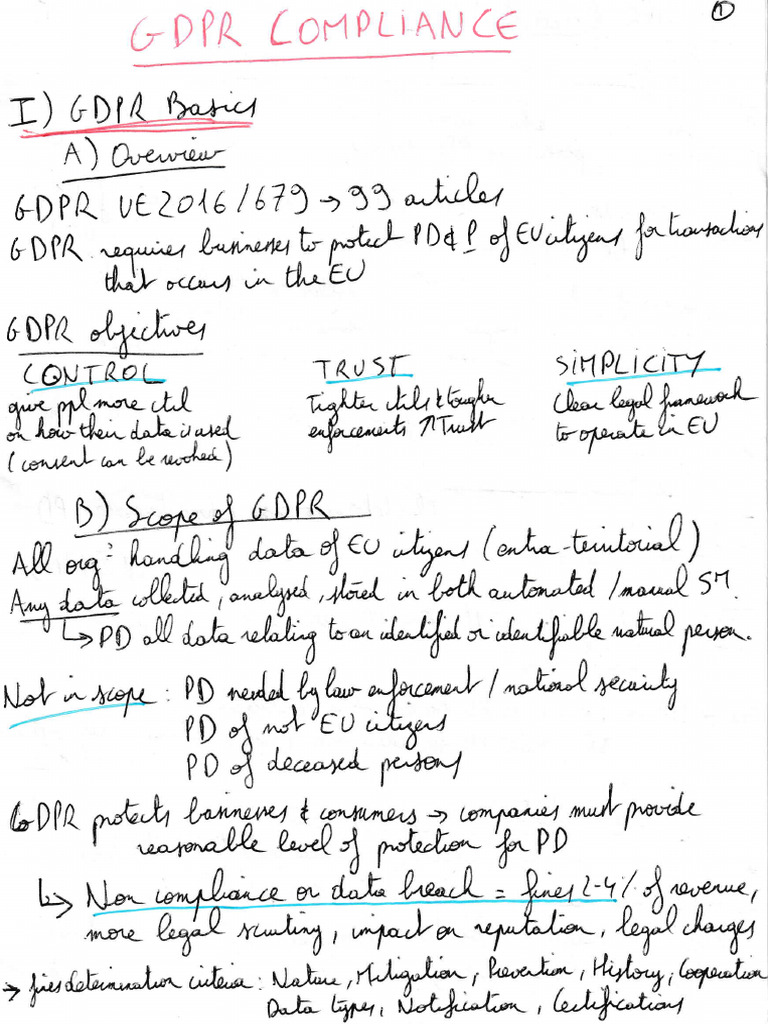 ①
GDPR COMPLIANCE
I) GDPR Basics
A) Overview
GDPR UE2016/679 → 99 articles
GDPR requires businesses to protect PD & P of EU citizens for transactions
that occurs in the EU
GDPR objectives
CONTROL
give ppl more ctrl
on how their data is used
(consent can be revoked)
TRUST
Tighter ctrls & tougher
enforcements ↗ Trust
SIMPLICITY
Clear legal framework
to operate in EU
B) Scope of GDPR
All org° handling data of EU citizens (extra-territorial)
Any data collected, analysed, stored in both automated / manual SM.
↳ PD all data relating to an identified or identifiable natural person.
Not in scope : PD needed by law enforcement / national security
PD of not EU citizens
PD of deceased persons
GDPR protects businesses & consumers → companies must provide
reasonable level of protection for PD
↳ Non compliance or data breach = fines 2-4% of revenue,
more legal scrutiny, impact on reputation, legal charges
→ fines determination criteria : Nature, Mitigation, Prevention, History, Cooperation
Data types, Notification, Certifications